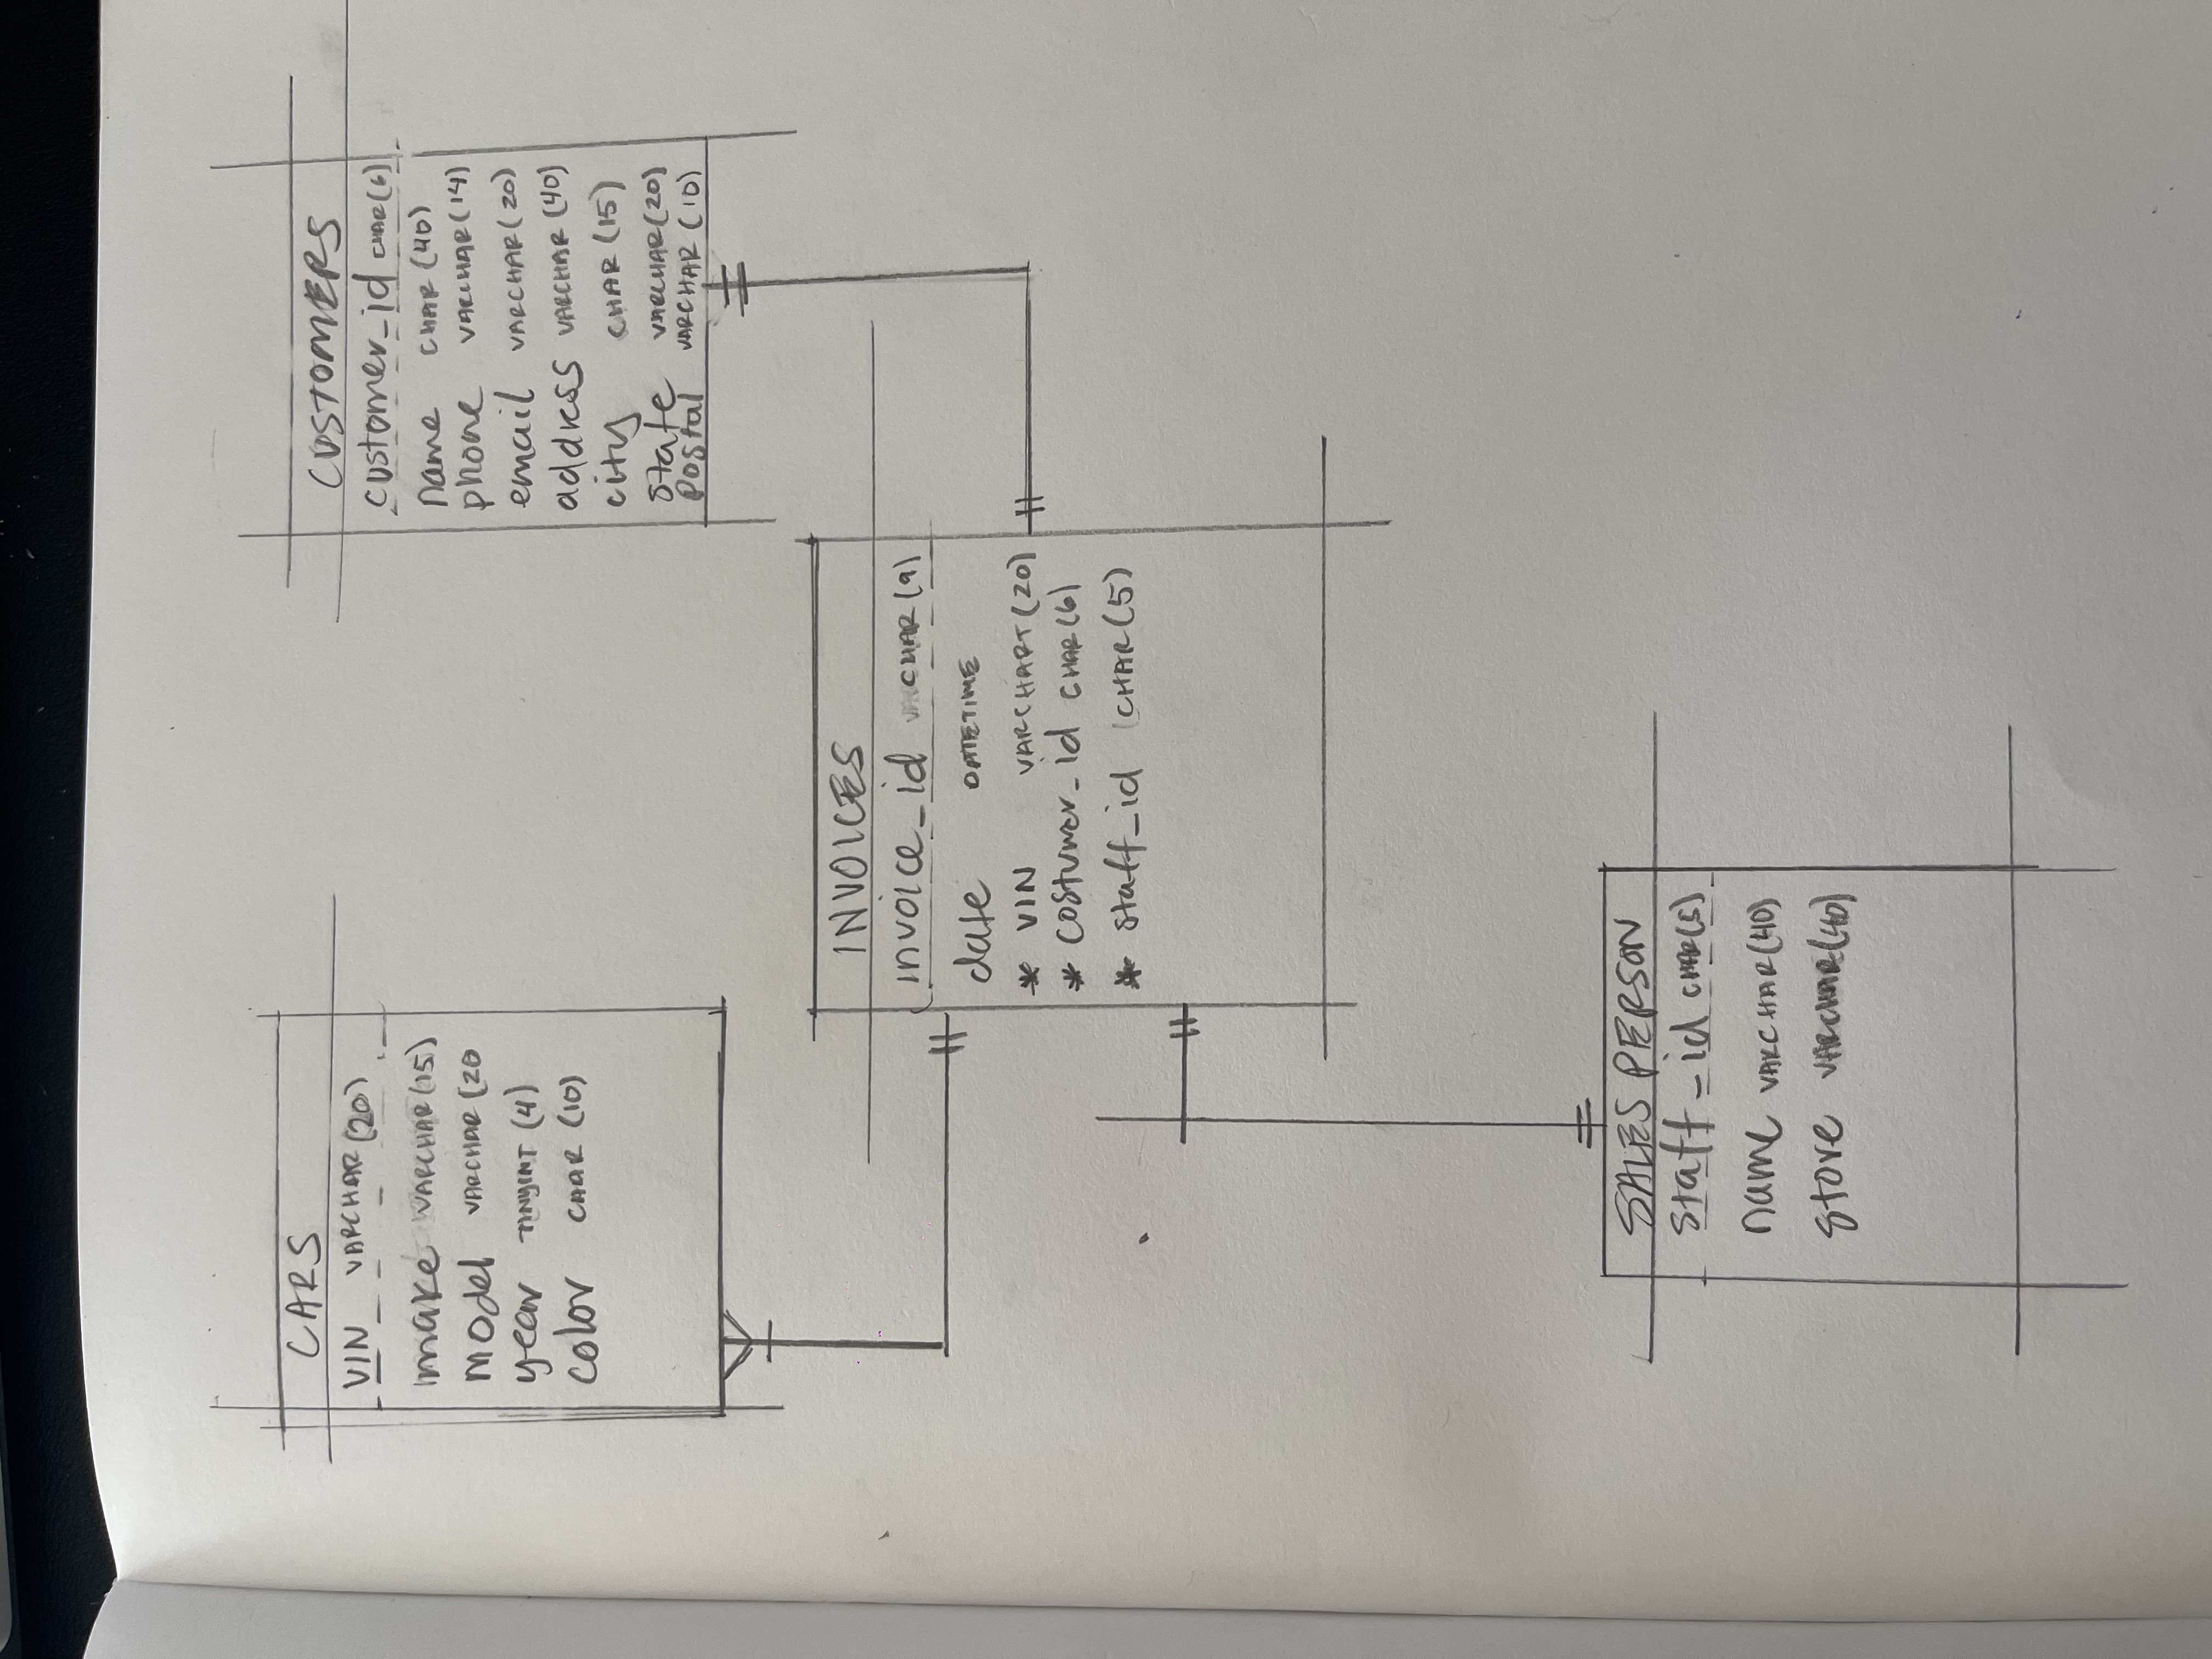 CARS
VIN VARCHAR (20)
make VARCHAR (15)
model VARCHAR (20
year TINYINT (4)
color CHAR (10)
CUSTOMERS
customer_id CHAR(6)
name CHAR (40)
phone VARCHAR (14)
email VARCHAR (20)
address VARCHAR (40)
city CHAR (15)
state VARCHAR (20)
postal VARCHAR (10)
INVOICES
invoice_id CHAR (9)
date DATETIME
* VIN VARCHART (20)
* costumer_id CHAR (6)
* staff_id CHAR (5)
SALES PERSON
staff_id CHAR(5)
name VARCHAR (40)
store VARCHAR (40)